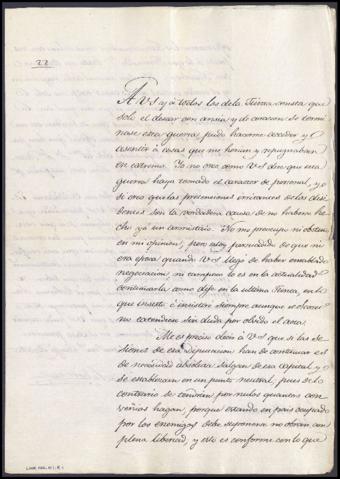 22
A V.S y á todos los de la Junta consta que
solo el desear con ansia y de corazon se termi-
nase esta guerra, pudo hacerme acceder y
asentir á cosas que me herian y repugnaban
en estremo. Yo no creo como V.S dice que esa
guerra haya tomado el caracter de personal, y
si creo que las pretensiones de las
son la verdadera causa de no haberse he-
cho yá un armisticio. No me preocupo ni obstino
en mi opinion, pero estoy persuadido de que ni
era epoca quando V.S llegó de haber entablado
negociacion, ni tampoco lo es en la actualidad
continuarla como dije en la ultima Junta, en lo
que insistí é insistiré siempre aunque el
no estendiese sin duda por olvido el acta.
Me es preciso decir á V.S que si las se-
siones de esa Diputacion han de continuar es
de necesidad absoluta salgan de esa capital y
se establezcan en un punto neutral, pues de lo
contrario se tendrán por nulos quantos con-
venios hagan, porque estando en pais ocupado
por los enemigos debe suponerse no obran con
plena libertad, y esto es conforme con lo que